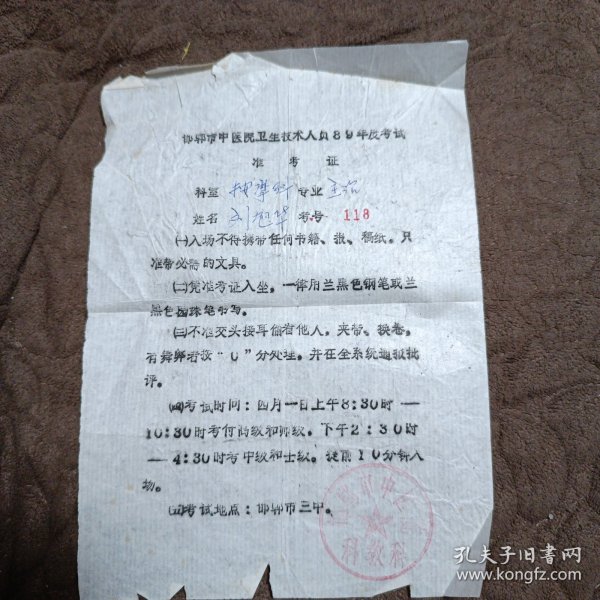 邯郸市中医院卫生技术人员89年度考试
准考证
科室 按摩科 专业 主治
姓名 刘 考号 118
㈠入场不得携带任何书籍、报、稿纸。只
准带必需的文具。
㈡凭准考证入坐，一律用兰黑色钢笔或兰
黑色园珠笔书写。
㈢不准交头接耳偷看他人，夹带、换卷，
有舞弊者按“0”分处理，并在全系统通报批
评。
㈣考试时间：四月一日上午8:30时—
10:30时考付高级和师级。下午2:30时
—4:30时考中级和士级。提前10分钟入
场。
㈤考试地点：邯郸市三中。
市中医
科教科
孔夫子旧书网
www.kongfz.com